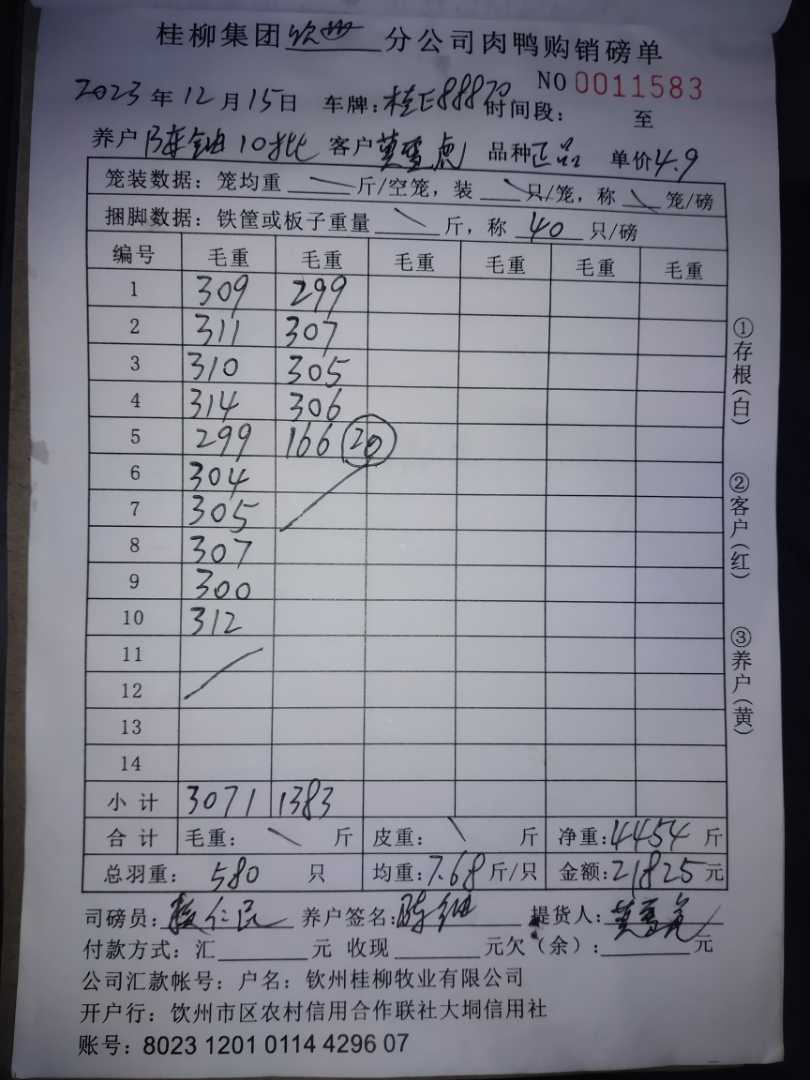 桂柳集团钦州分公司肉鸭购销磅单
NO 0011583
2023年12月15日 车牌:桂E88870 时间段: 至
养户 陈 10批 客户 莫 虎 品种 正品 单价4.9
笼装数据: 笼均重 斤/空笼, 装 只/笼, 称 笼/磅
捆脚数据: 铁筐或板子重量 斤, 称 40 只/磅
编号 毛重 毛重 毛重 毛重 毛重 毛重
1 309 299
2 311 307
3 310 305
4 314 306
5 299 166 20
6 304
7 305
8 307
9 300
10 312
11
12
13
14
小计 3071 1383
合计 毛重: 斤 皮重: 斤 净重:4454 斤
总羽重: 580 只 均重:7.68 斤/只 金额:21825元
司磅员: 仁民 养户签名:陈 提货人:莫
付款方式: 汇 元 收现 元欠(余): 元
公司汇款帐号: 户名: 钦州桂柳牧业有限公司
开户行: 钦州市区农村信用合作联社大垌信用社
账号: 8023 1201 0114 4296 07
①存根(白)
②客户(红)
③养户(黄)